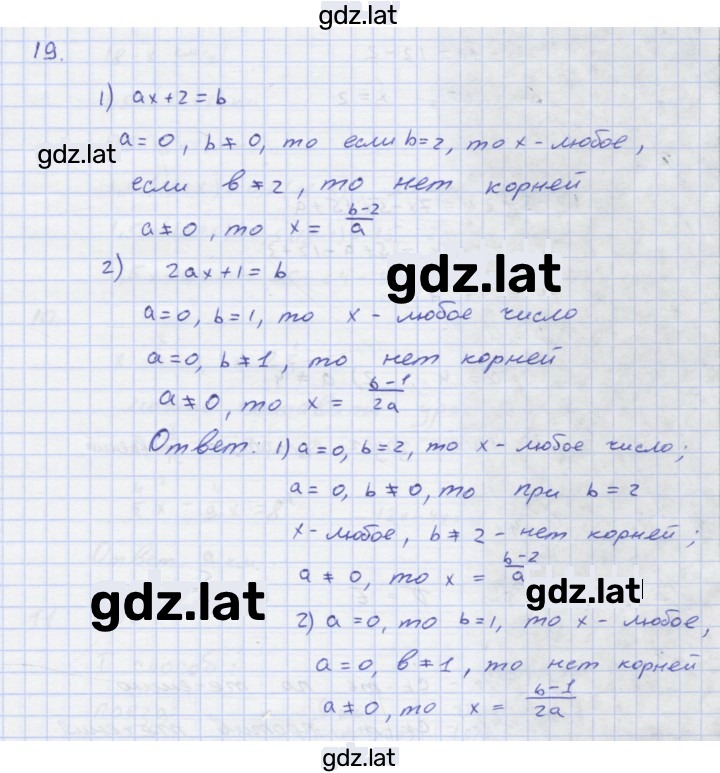 gdz.lat
19.
1) ax+2=b
a=0, b≠0, то если b=2, то x - любое,
gdz.lat
если b≠2, то нет корней
a≠0, то x = (b-2)/a
2) 2ax+1=b
gdz.lat
a=0, b=1, то x - любое число
a=0, b≠1, то нет корней
a≠0, то x = (b-1)/2a
Ответ: 1) a=0, b=2, то x - любое число;
a=0, b≠0, то при b=2
x - любое, b≠2 - нет корней;
a≠0, то x = (b-2)/a
gdz.lat
gdz.lat
2) a=0, то b=1, то x - любое,
a=0, b≠1, то нет корней
a≠0, то x = (b-1)/2a
gdz.lat